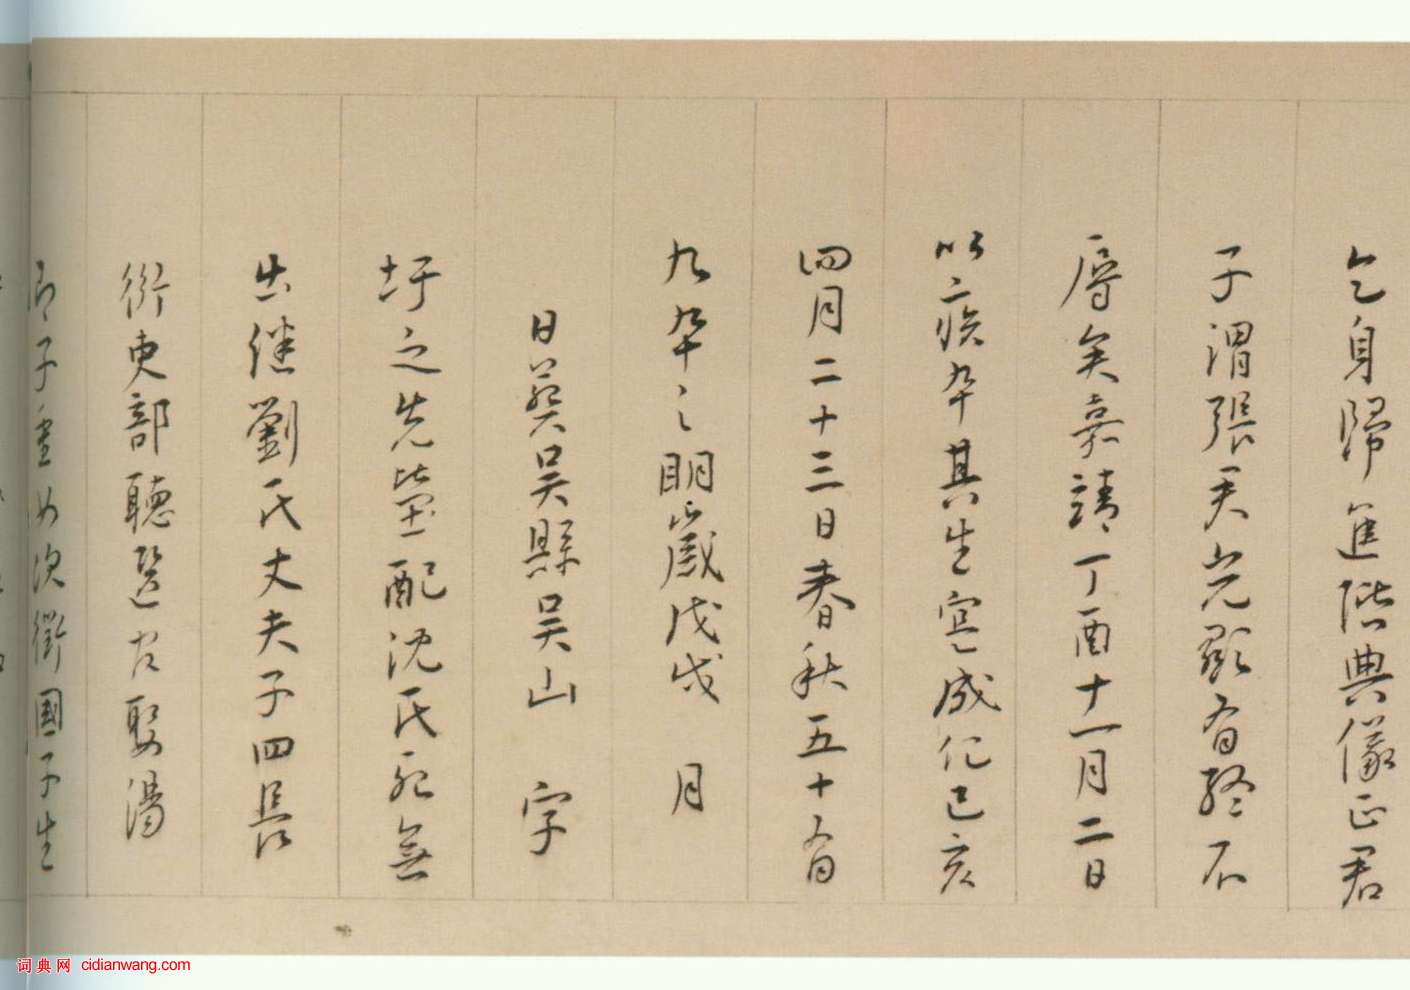 乞身歸進階典儀正君
子謂張君光顯有終不
辱矣嘉靖丁酉十一月二日
以疾卒其生寔成化己亥
四月二十三日春秋五十有
九卒之明歲戊戌 月
日葬吳縣吳山 字
圩之先塋配沈氏死無
出繼劉氏丈夫子四長
衎吏部聽選官娶湯
子 女次衢國子生
词典网 cidianwang.com